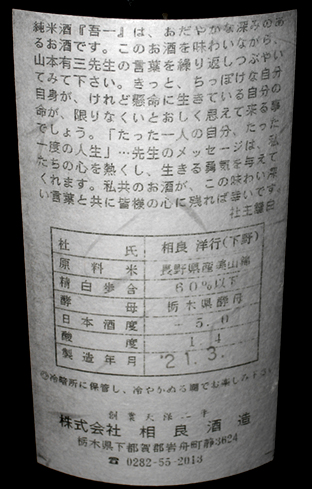 純米酒『吾一』は、おだやかな深みのあ
るお酒です。このお酒を味わいながら、
山本有三先生の言葉を繰り返しつぶやい
てみて下さい。きっと、ちっぽけな自分
自身が、けれど懸命に生きている自分の
命が、限りなくいとおしく思えて来る事
でしょう。「たった一人の自分、たった
一度の人生」…先生のメッセージは、私
たちの心を熱くし、生きる勇気を与えて
くれます。私共のお酒が、この味わい深
い言葉と共に皆様の心に残れば幸いです。
社主謹白
杜氏 相良 洋行(下野)
原料米 長野県産美山錦
精白歩合 60%以下
酵母 栃木県酵母
日本酒度 5.0
酸度 1.4
製造年月 '21.3.
冷暗所に保管し、冷やかぬる燗でお楽しみ下さい
創業天保二年
株式会社 相良酒造
栃木県下都賀郡岩舟町静3624
☎ 0282-55-2013